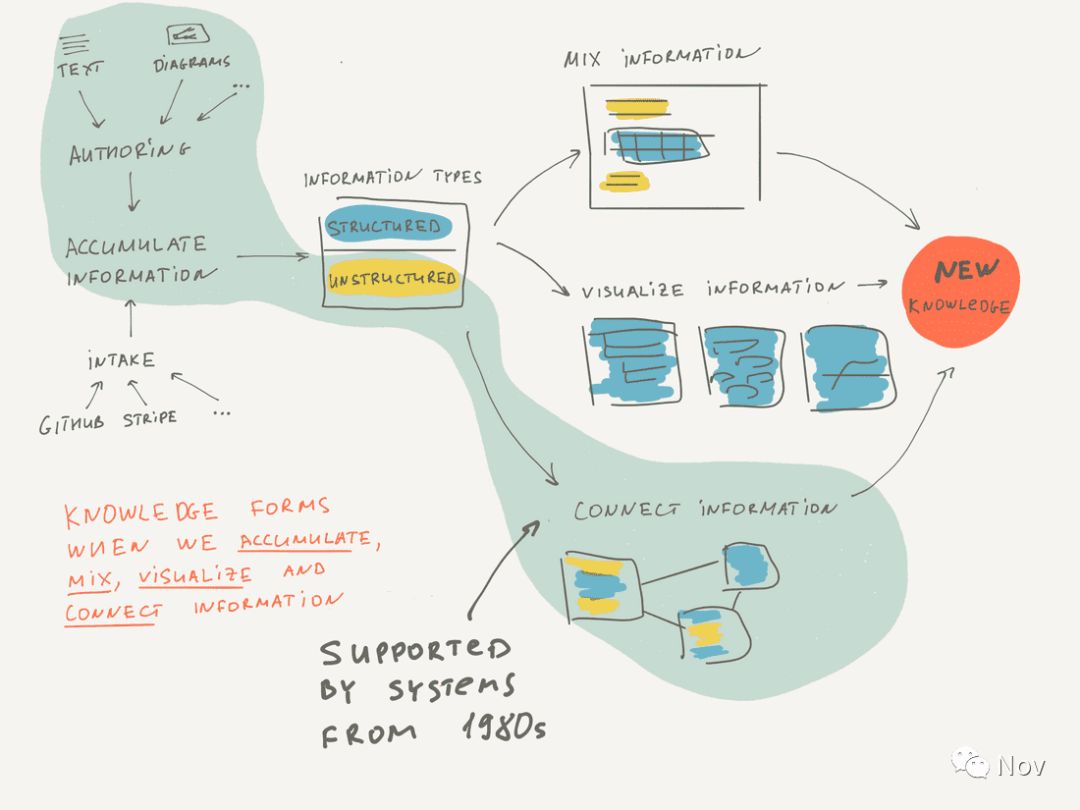 TEXT
DIAGRAMS
...
AUTHORING
ACCUMULATE
INFORMATION
INTAKE
GITHUB
STRIPE
...
INFORMATION TYPES
STRUCTURED
UNSTRUCTURED
MIX INFORMATION
VISUALIZE INFORMATION
NEW
KNOWLEDGE
CONNECT INFORMATION
KNOWLEDGE FORMS
WHEN WE ACCUMULATE,
MIX, VISUALIZE AND
CONNECT INFORMATION
SUPPORTED
BY SYSTEMS
FROM 1980s
Nov